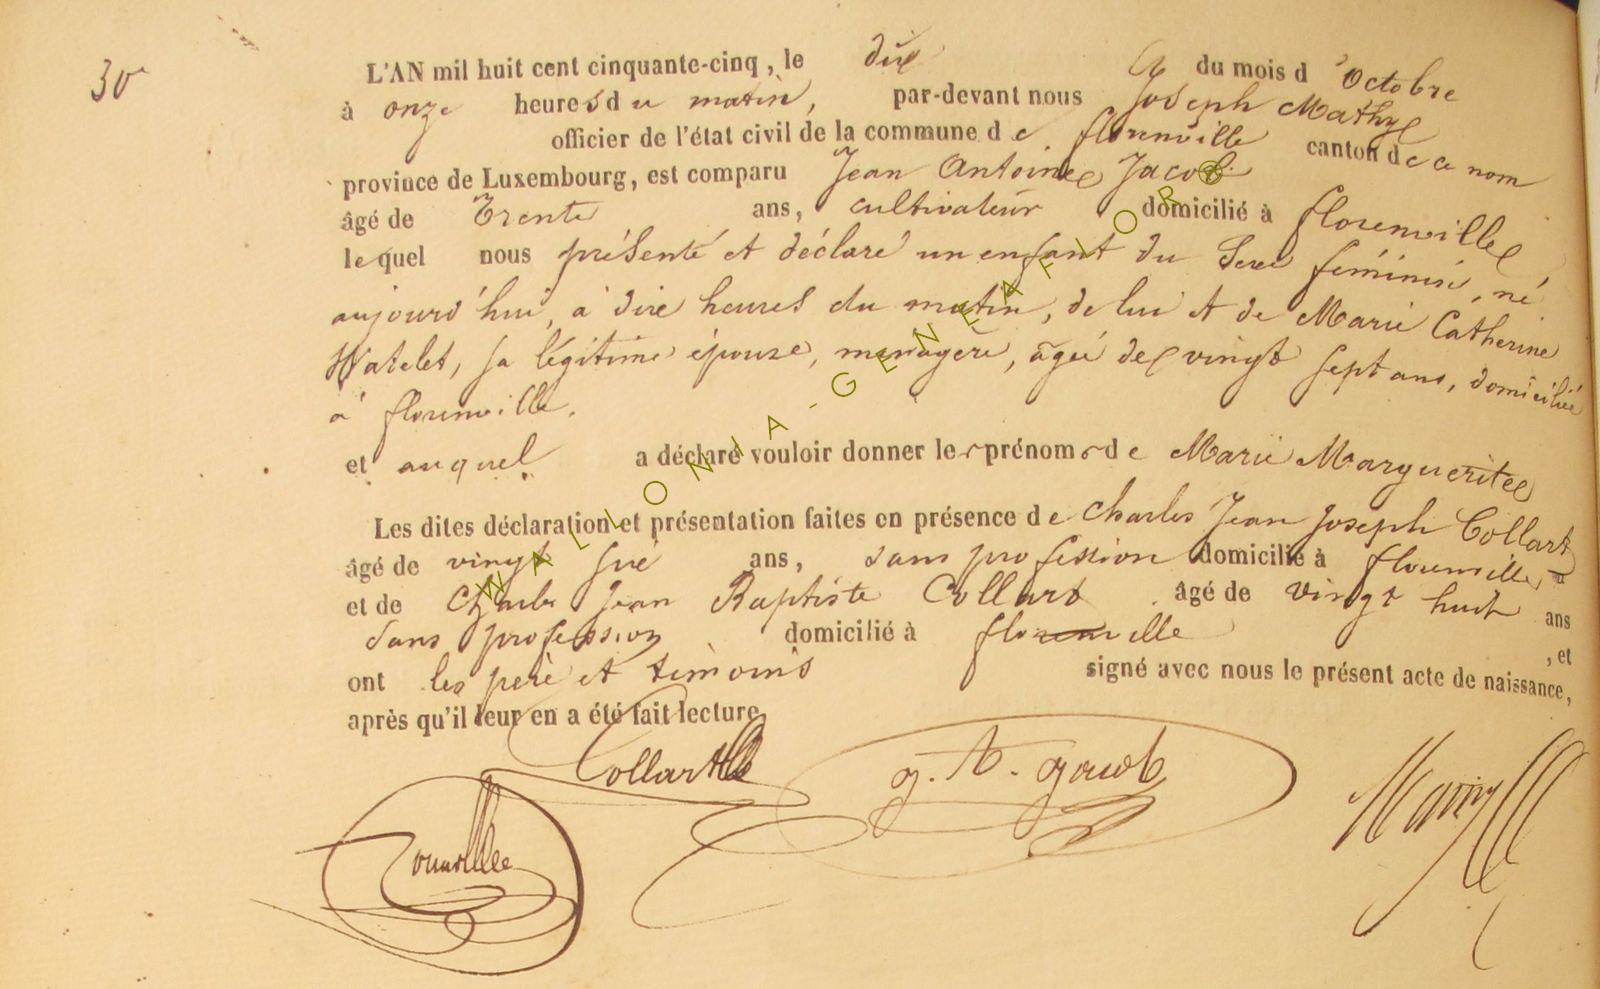 30
L'AN mil huit cent cinquante-cinq, le dix du mois d'Octobre
à onze heures du matin, par-devant nous Joseph Mathy
officier de l'état civil de la commune de florenville canton de ce nom
province de Luxembourg, est comparu Jean Antoine Jacob
âgé de Trente ans, cultivateur domicilié à florenville
lequel nous présenté et déclaré un enfant du Sexe féminin, né
aujourd'hui, à dix heures du matin, de lui et de Marie Catherine
Watelet, sa légitime épouse, menagère, âgée de vingt sept ans, domiciliée
à florenville.
et auquel a déclaré vouloir donner les prénoms de Marie Marguerite
Les dites déclaration et présentation faites en présence de Charles Jean Joseph Collart
âgé de vingt ans, sans profession domicilié à florenville,
et de Charles Jean Baptiste Collart âgé de vingt huit ans
sans profession domicilié à florenville , et
ont les père et témoins signé avec nous le présent acte de naissance,
après qu'il leur en a été fait lecture
Collart J. A. Jacob Mathy
WALLONIA-GENEAFLOR